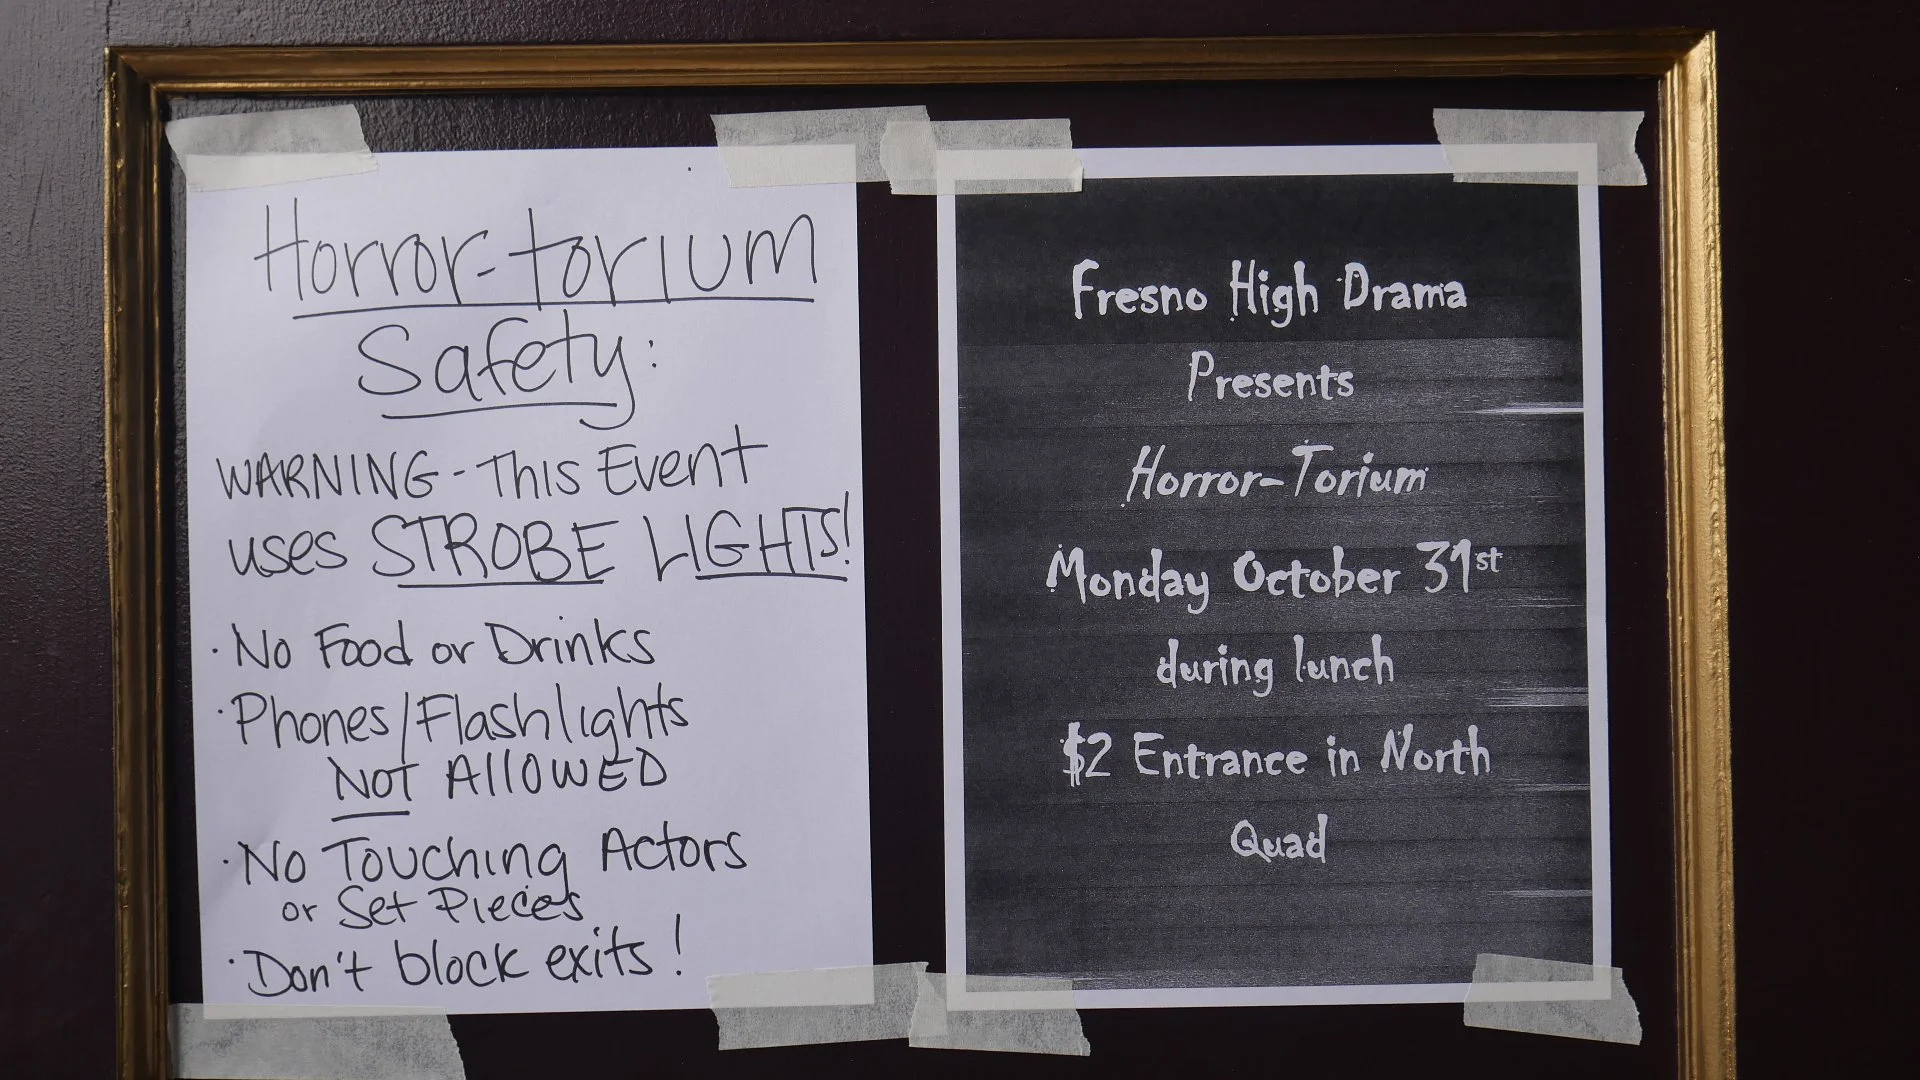 Horror-torium
Safety:
WARNING - This Event
uses STROBE LIGHTS!
· No Food or Drinks
· Phones/Flashlights
NOT AllOWED
· No Touching Actors
or Set Pieces
· Don't block exits!
Fresno High Drama
Presents
Horror-Torium
Monday October 31st
during lunch
$2 Entrance in North
Quad